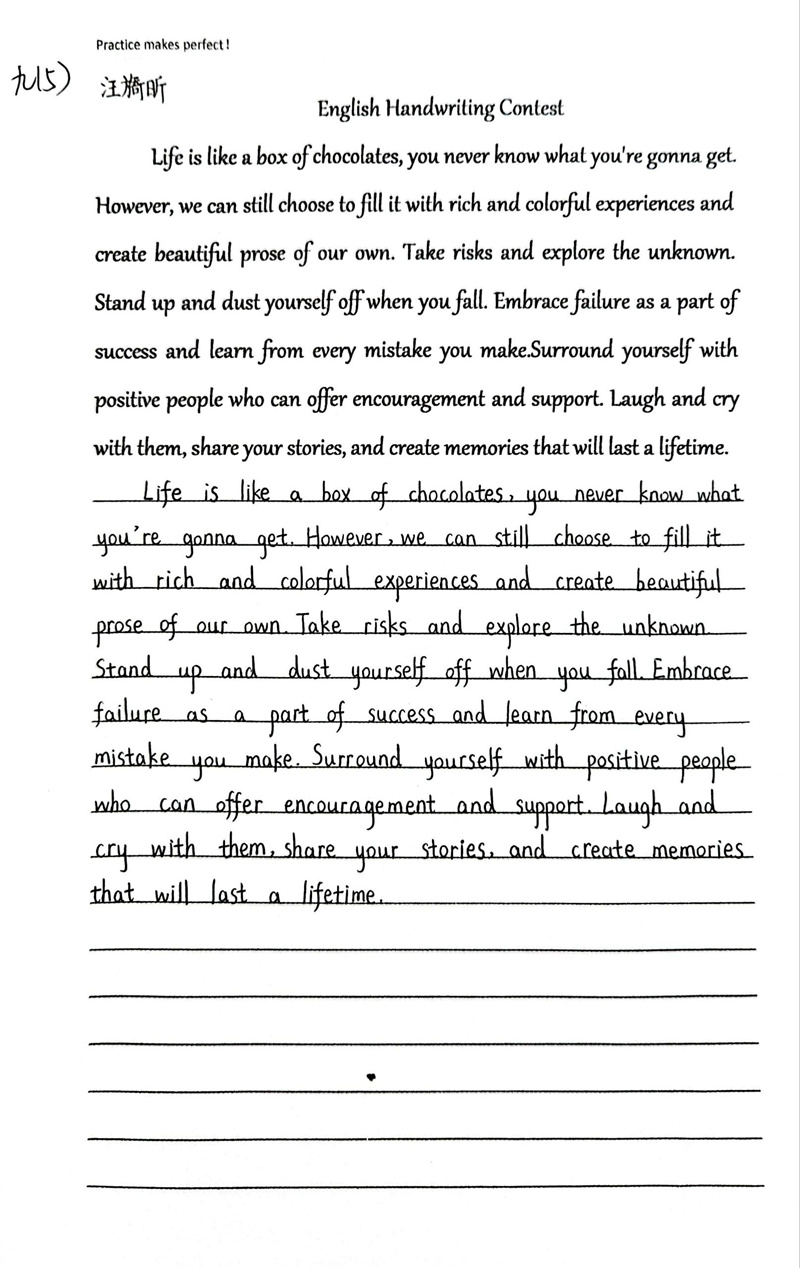 Practice makes perfect!
九(5)
汪旖昕
English Handwriting Contest
Life is like a box of chocolates, you never know what you're gonna get.
However, we can still choose to fill it with rich and colorful experiences and
create beautiful prose of our own. Take risks and explore the unknown.
Stand up and dust yourself off when you fall. Embrace failure as a part of
success and learn from every mistake you make.Surround yourself with
positive people who can offer encouragement and support. Laugh and cry
with them, share your stories, and create memories that will last a lifetime.
Life is like a box of chocolates, you never know what
you're gonna get. However, we can still choose to fill it
with rich and colorful experiences and create beautiful
prose of our own. Take risks and explore the unknown.
Stand up and dust yourself off when you fall. Embrace
failure as a part of success and learn from every
mistake you make. Surround yourself with positive people
who can offer encouragement and support. Laugh and
cry with them, share your stories, and create memories
that will last a lifetime.